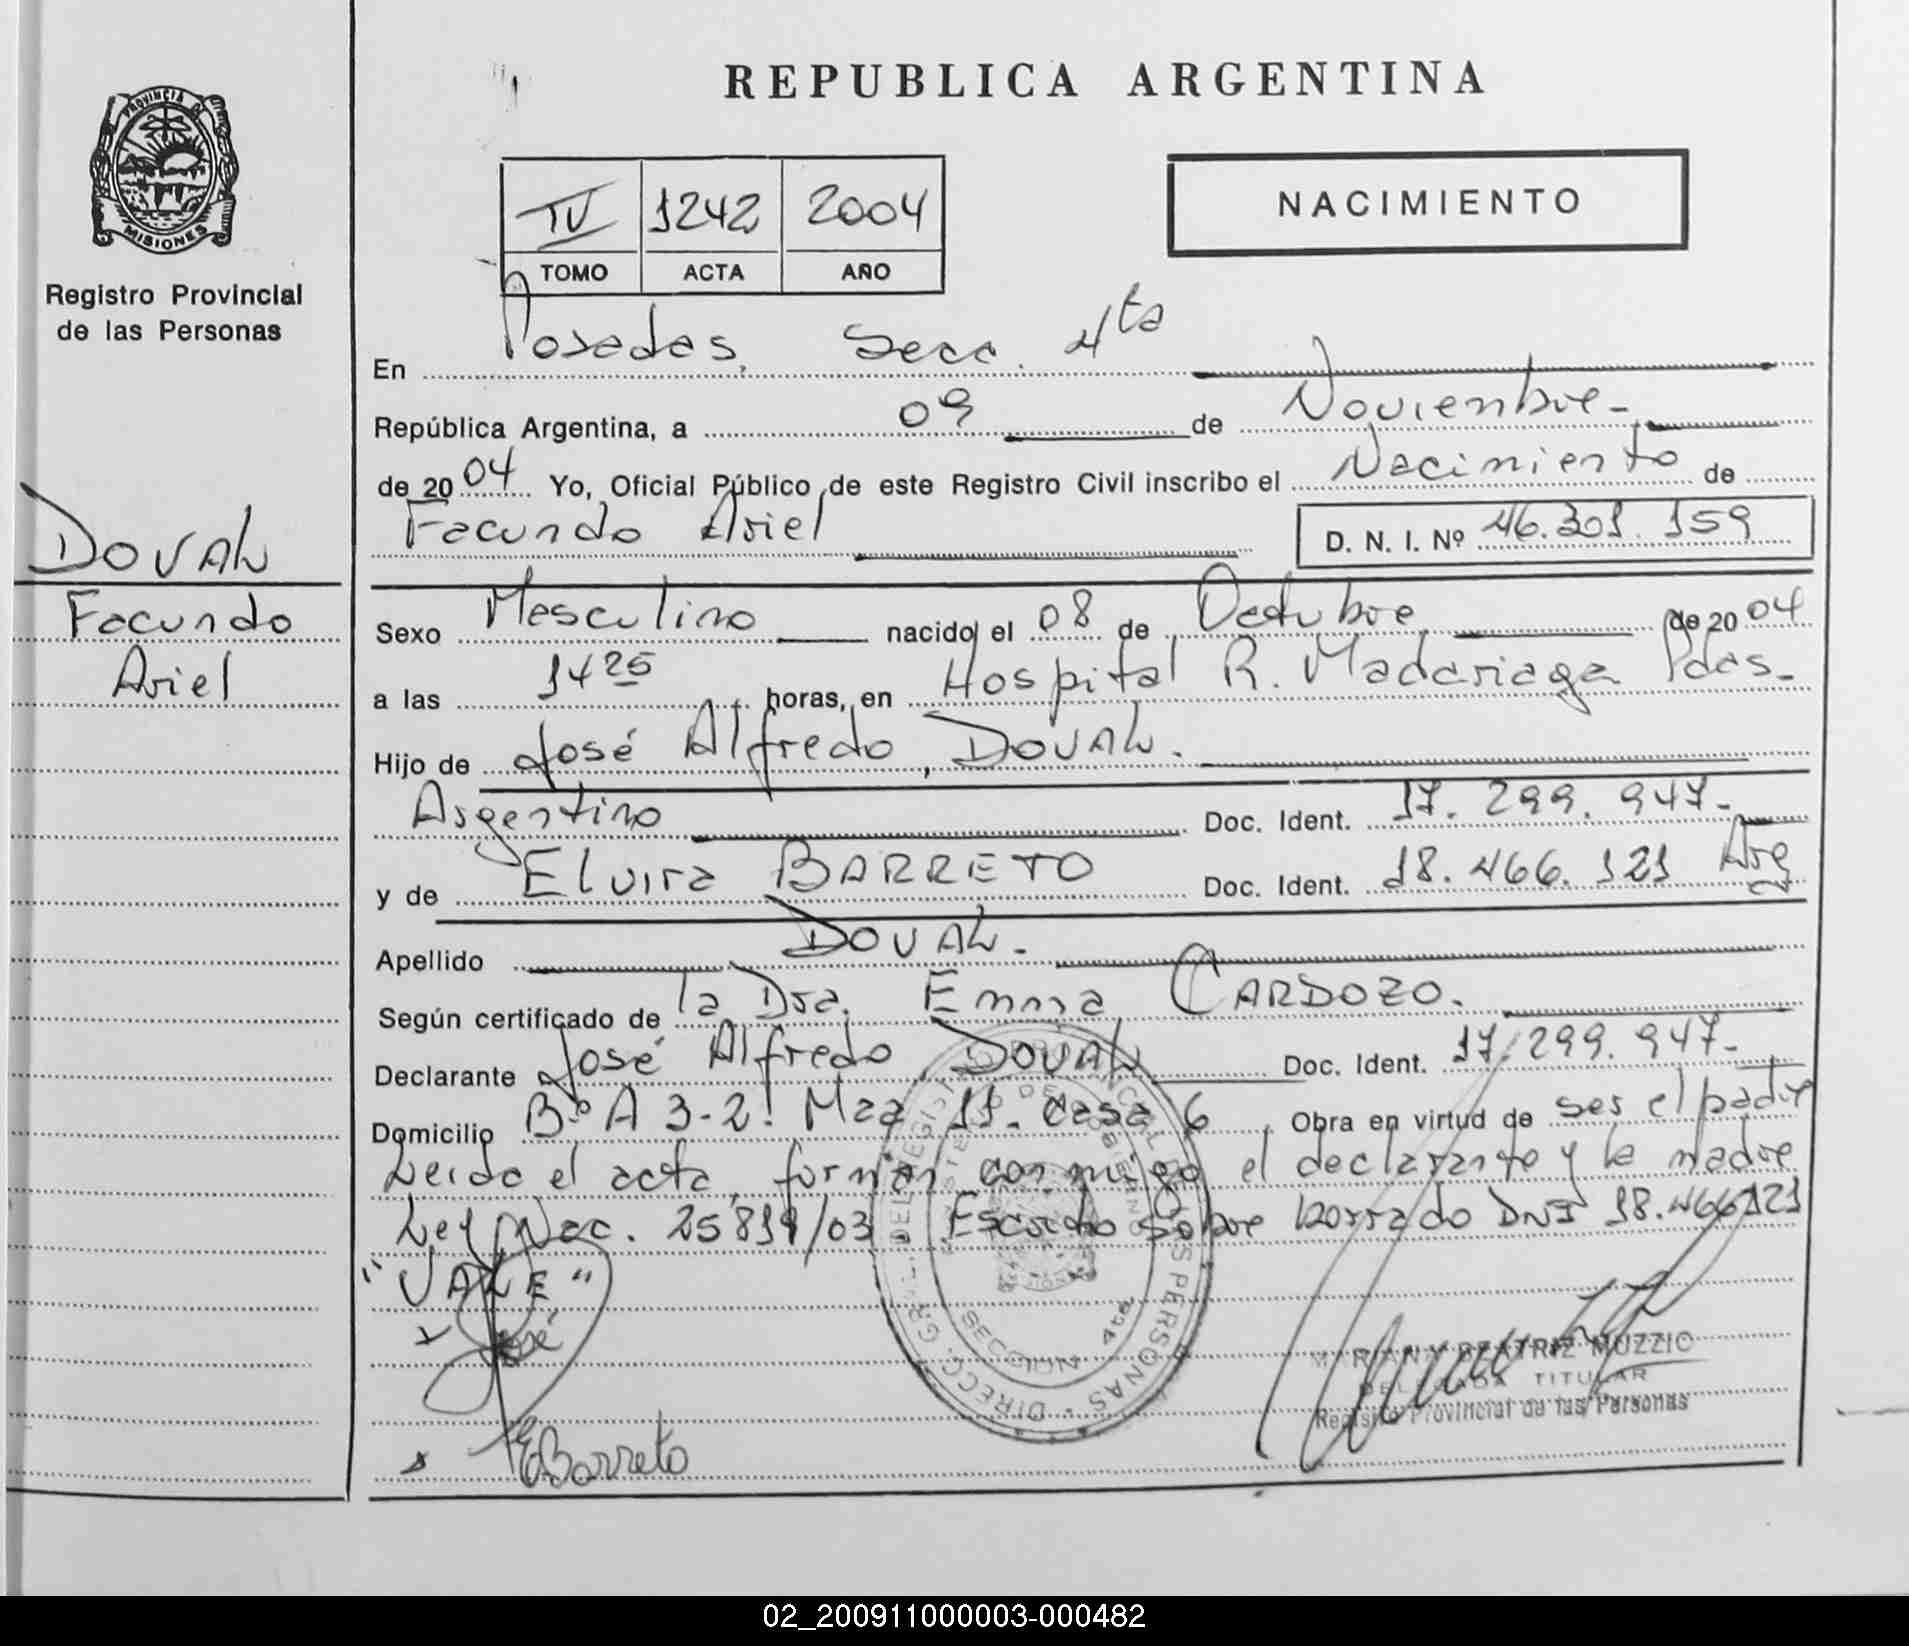 REPUBLICA ARGENTINA
PROVINCIA DE
MISIONES
Registro Provincial
de las Personas
IV 1242 2004
TOMO ACTA AÑO
NACIMIENTO
En Posadas, Secc. 4ta
República Argentina, a 09 de Noviembre-
de 2004 Yo, Oficial Público de este Registro Civil inscribo el Nacimiento de
Facundo Ariel D. N. I. Nº 46.301.159
DOVAL
Facundo
Ariel
Sexo Masculino nacido el 08 de Octubre de 2004
a las 14 25 horas, en Hospital R. Madariaga Pdas.
Hijo de José Alfredo, DOVAL.
Argentino Doc. Ident. 17.299.947-
y de Elvira BARRETO Doc. Ident. 18.466.121 Arg
Apellido DOVAL.
Según certificado de la Dra. Emma CARDOZO.
Declarante José Alfredo, DOVAL Doc. Ident. 17.299.947-
Domicilio Bº A 3-2. Mza 11. casa 6 Obra en virtud de ser el padre
Leida el acta, forman conmigo el declarante y la madre
Ley Nac. 25819/03. Escrito sobre borrado DNI 18.466121
"VALE"
José
EBarreto
DIRECC. GRAL. DEL REGISTRO PROVINCIAL DE LAS PERSONAS
MINISTERIO DE GOBIERNO
SECCION 4ta
MARIANA BEATRIZ MUZZIO
DELEGADA TITULAR
Registro Provincial de las Personas
02_200911000003-000482